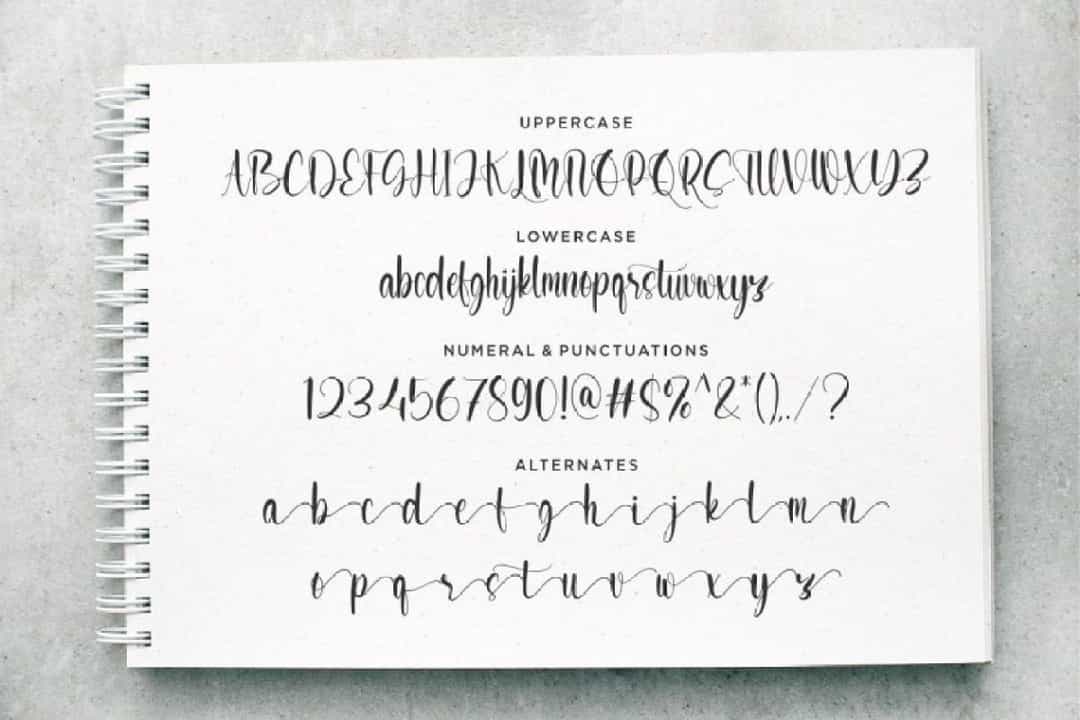 UPPERCASE
ABCDEFGHIJKLMNOPQRSTUVWXYZ
LOWERCASE
abcdefghijklmnopqrstuvwxyz
NUMERAL & PUNCTUATIONS
1234567890!@#$%^&*(),./?
ALTERNATES
abcdefghijklmn
opqrstuvwxyz